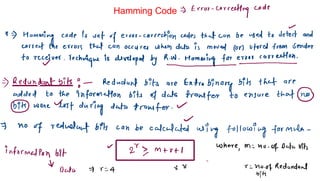 Hamming Code → Error-correcting code
→ Hamming code is set of error-correction codes that can be used to detect and
correct the errors that can occures when data is moved (or) stored from sender
to receiver. Technique is developed by R.W. Hamming for error correction.
→ Redundant bits :- Redundant bits are Extra binary bits that are
added to the information bits of data transfer to ensure that no
bits were lost during data transfer.
→ no of redundant bits can be calculated using following formula -
information bit
2^r ≥ m+r+1
where, m = no. of Data bits
→ Data
→ r=4
r = no. of Redundant
bits